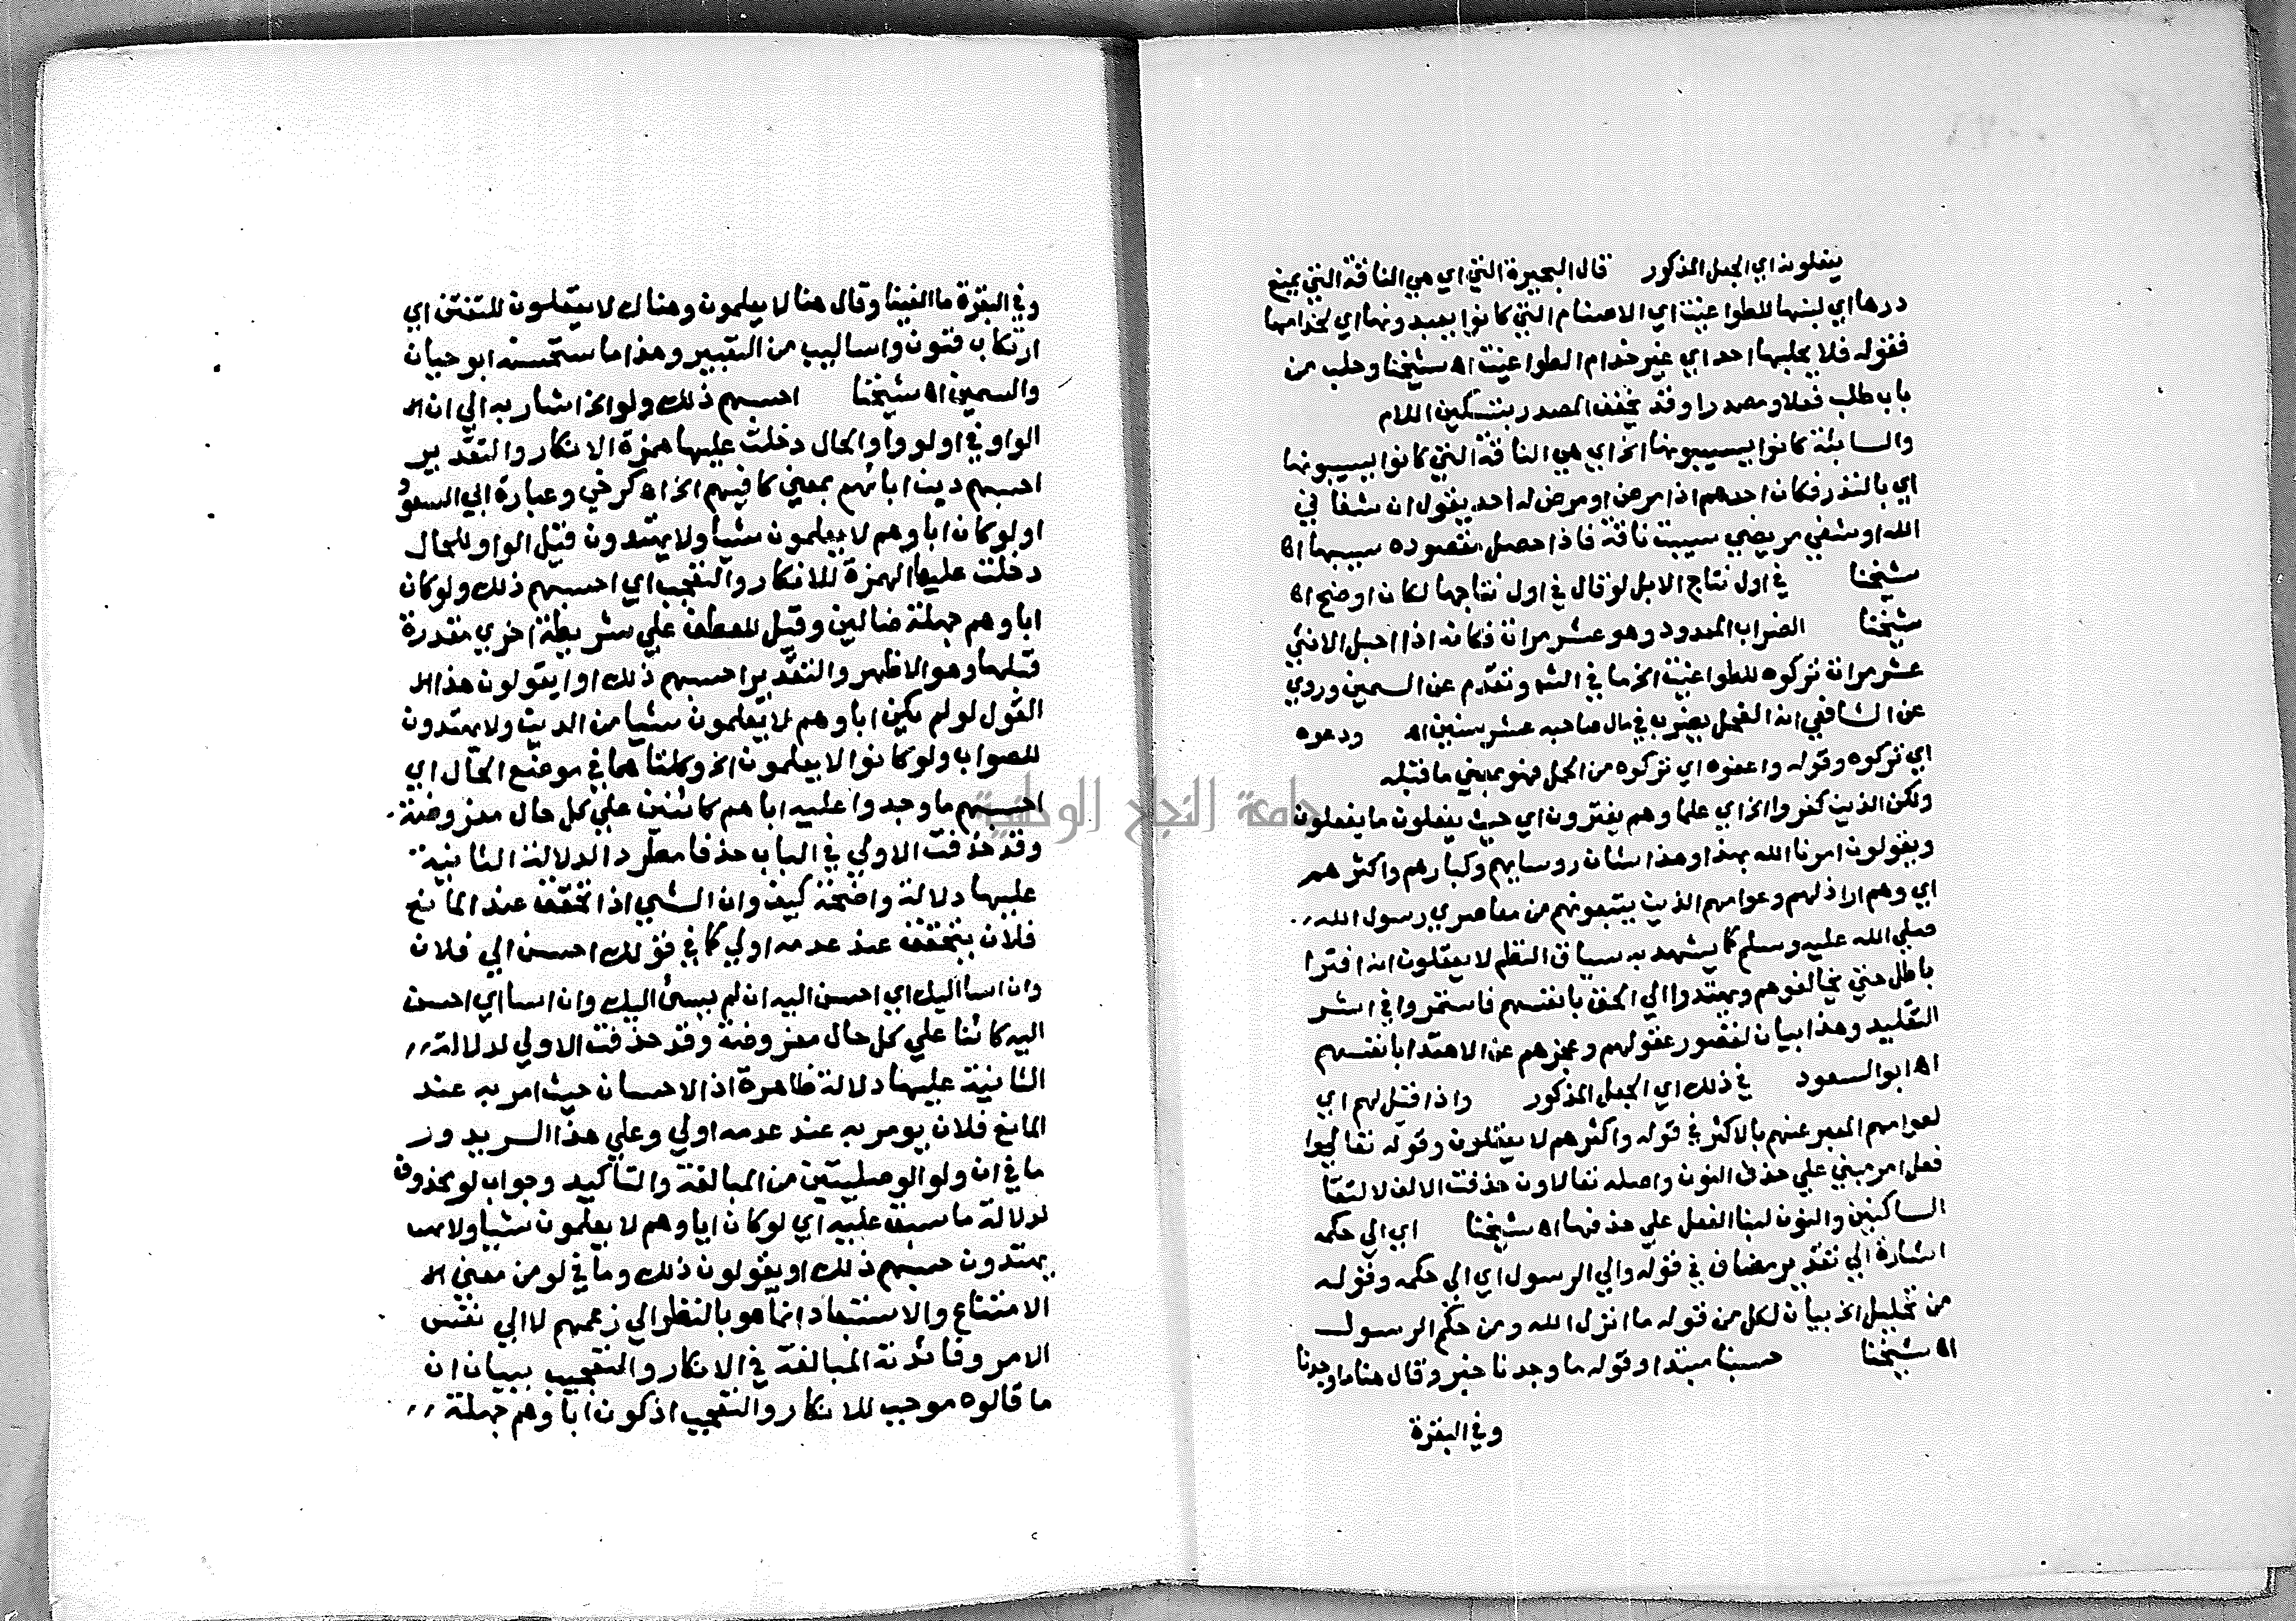 يفعلون اي الجعل المذكور قال البحيرة التي اي هي الناقة التي يمنع
درها اي لبنها للطواغيت اي الاصنام التي كانوا يعبدونها اي لخدامها
فقوله فلا يحلبها احد اي غير خدام الطواغيت اه شيخنا وحلب من
باب طلب فعلا ومصدرا وقد يخفف المصدر بتسكين اللام
والسائبة كانوا يسيبونها الخ اي هي الناقة التي كانوا يسيبونها
اي بالنذر فكان احدهم اذا مرض او مرض له احد يقول ان شفا ني
الله او شفي مريضي سيبت ناقة فاذا حصل مقصوده سيبها اه
شيخنا في اول نتاج الابل لو قال في اول نتاجها لكان اوضح اه
شيخنا الضراب المعدود وهو عشر مرات فكانه اذا احبل الانثي
عشر مرات تركوه للطواغيت الخ ما في الشـ وتقدم عن السمين وروي
عن الشافعي انه الفحل يضرب في مال صاحبه عشر سنين اه ودعوه
اي تركوه وقوله واعفوه اي تركوه من الحمل فهو بمعني ما قبله
ولكن الذين كفروا الخ اي علما وهم يفترون اي حيث يفعلون ما يفعلون
ويقولون امرنا الله بهذا وهذا شان روسايهم وكبارهم واكثرهم
اي وهم اراذلهم وعوامهم الذين يتبعونهم من معاصري رسول الله
صلي الله عليه وسلم كما يشهد به سياق النظم لا يعقلون انه افترا
باطل حتي يخالفوهم ويهتدوا الي الحق بانفسهم فاستمروا في اشر
التقليد وهذا بيان لقصور عقولهم وعجزهم عن الاهتدا بانفسهم
اه ابو السعود في ذلك اي الجعل المذكور واذا قيل لهم اي
لعوامهم المعبر عنهم بالاكثر في قوله واكثرهم لا يعقلون وقوله تعالوا
فعل امر مبني علي حذف النون واصله تعالاون حذفت الالف لالتقا
الساكنين والنون لبنا الفعل علي حذفها اه شيخنا اي الي حكمه
اشارة الي تقدير مضاف في قوله والي الرسول اي الي حكمه وقوله
من تحليل الخ بيان لكل من قوله ما انزل الله ومن حكم الرسول
اه شيخنا حسبنا مبتدا وقوله ما وجدنا خبر وقال هنا ما وجدنا
وفي البقرة
وفي البقرة ما الفينا وقال هنا لا يعلمون وهناك لا يعقلون للتفنن اي
ارتكاب فنون واساليب من التعبير وهذا ما ستحسنه ابو حيان
والسمين اه شيخنا احسبهم ذلك ولو الخ اشار به الي ان الـ
الواو في اولو واو الحال دخلت عليها همزة الانكار والتقدير
احسبهم دين ابائهم بمعني كافيهم الخ اه كرخي وعبارة ابي السعود
اولو كان اباوهم لا يعلمون شيا ولا يهتدون قيل الواو للحال
دخلت عليها الهمزة للانكار والتعجب اي احسبهم ذلك ولو كان
اباوهم جهلة ضالين وقيل للعطف علي شريطة اخري مقدرة
قبلها وهو الاظهر والتقدير احسبهم ذلك او ايقولون هذا الـ
القول لو لم يكن اباوهم لا يعلمون شيا من الدين ولا يهتدون
للصواب ولو كانوا لا يعلمون الخ وكلتاهما في موضع الحال اي
احسبهم ما وجدوا عليه اباهم كائنين علي كل حال مفروضة
وقد حذفت الاولي في الباب حذفا مطرد الدلالة الثانية
عليها دلالة واضحة كيف وان الشي اذا تحقق عند المانع
فلان يتحقق عند عدمه اولي كما في قولك احسن الي فلان
وان اسا اليك اي احسن اليه ان لم يسئ اليك وان اسا اي احسن
اليه كائنا علي كل حال مفروضة وقد حذفت الاولي لدلالة
الثانية عليها دلالة ظاهرة اذ الاحسان حيث امر به عند
المانع فلان يومر به عند عدمه اولي وعلي هذا السر يدور
ما في ان ولو الوصليتين من المبالغة والتاكيد وجواب لو محذوف
لدلالة ما سبق عليه اي لو كان اباوهم لا يعلمون شيا ولا يهـ
يهتدون حسبهم ذلك او يقولون ذلك وما في لو من معني الـ
الامتناع والاستبعاد انما هو بالنظر الي زعمهم لا الي نفس
الامر وفائدته المبالغة في الانكار والتعجيب ببيان ان
ما قالوه موجب للانكار والتعجب اذ كون اباوهم جهلة
جامعة النجاح الوطنية